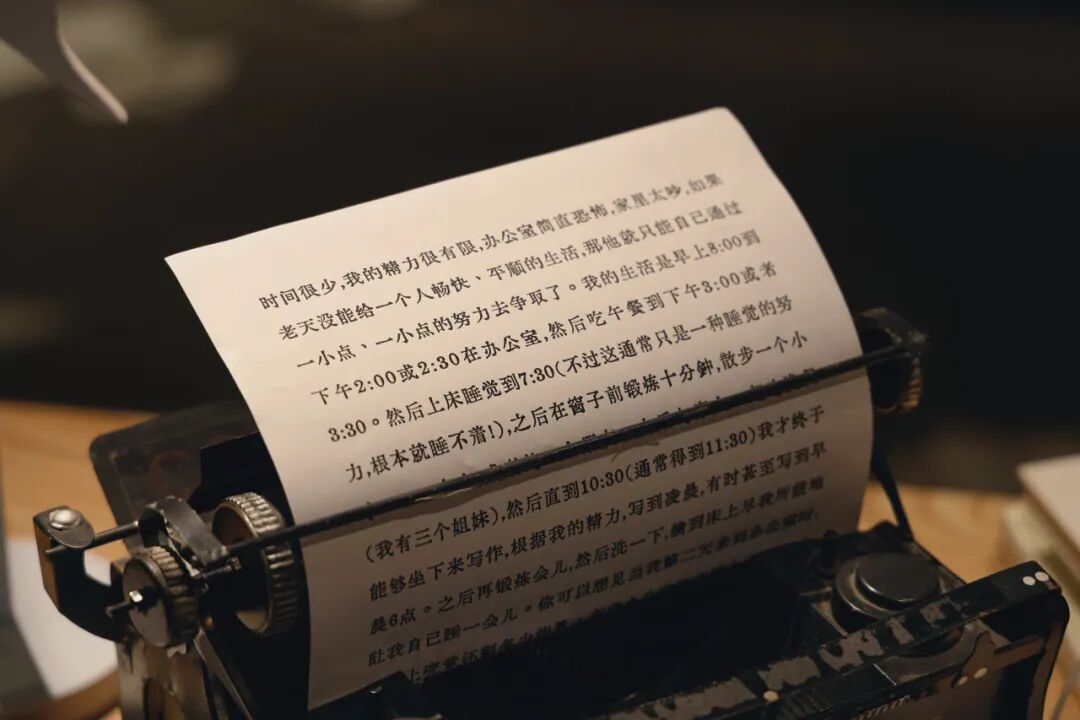 时间很少,我的精力很有限,办公室简直恐怖,家里太吵,如果
老天没能给一个人畅快、平顺的生活,那他就只能自己通过
一小点、一小点的努力去争取了。我的生活是早上8:00到
下午2:00或2:30在办公室,然后吃午餐到下午3:00或者
3:30。然后上床睡觉到7:30(不过这通常只是一种睡觉的努
力,根本就睡不着!),之后在窗子前锻炼十分鈡,散步一个小
(我有三个姐妹),然后直到10:30(通常得到11:30)我才终于
能够坐下来写作,根据我的精力,写到凌晨,有时甚至写到早
晨6点。之后再锻炼会儿,然后洗一下,躺到床上尽我所能地
让我自己睡一会儿。你可以想见当我第二天来到办公室时,